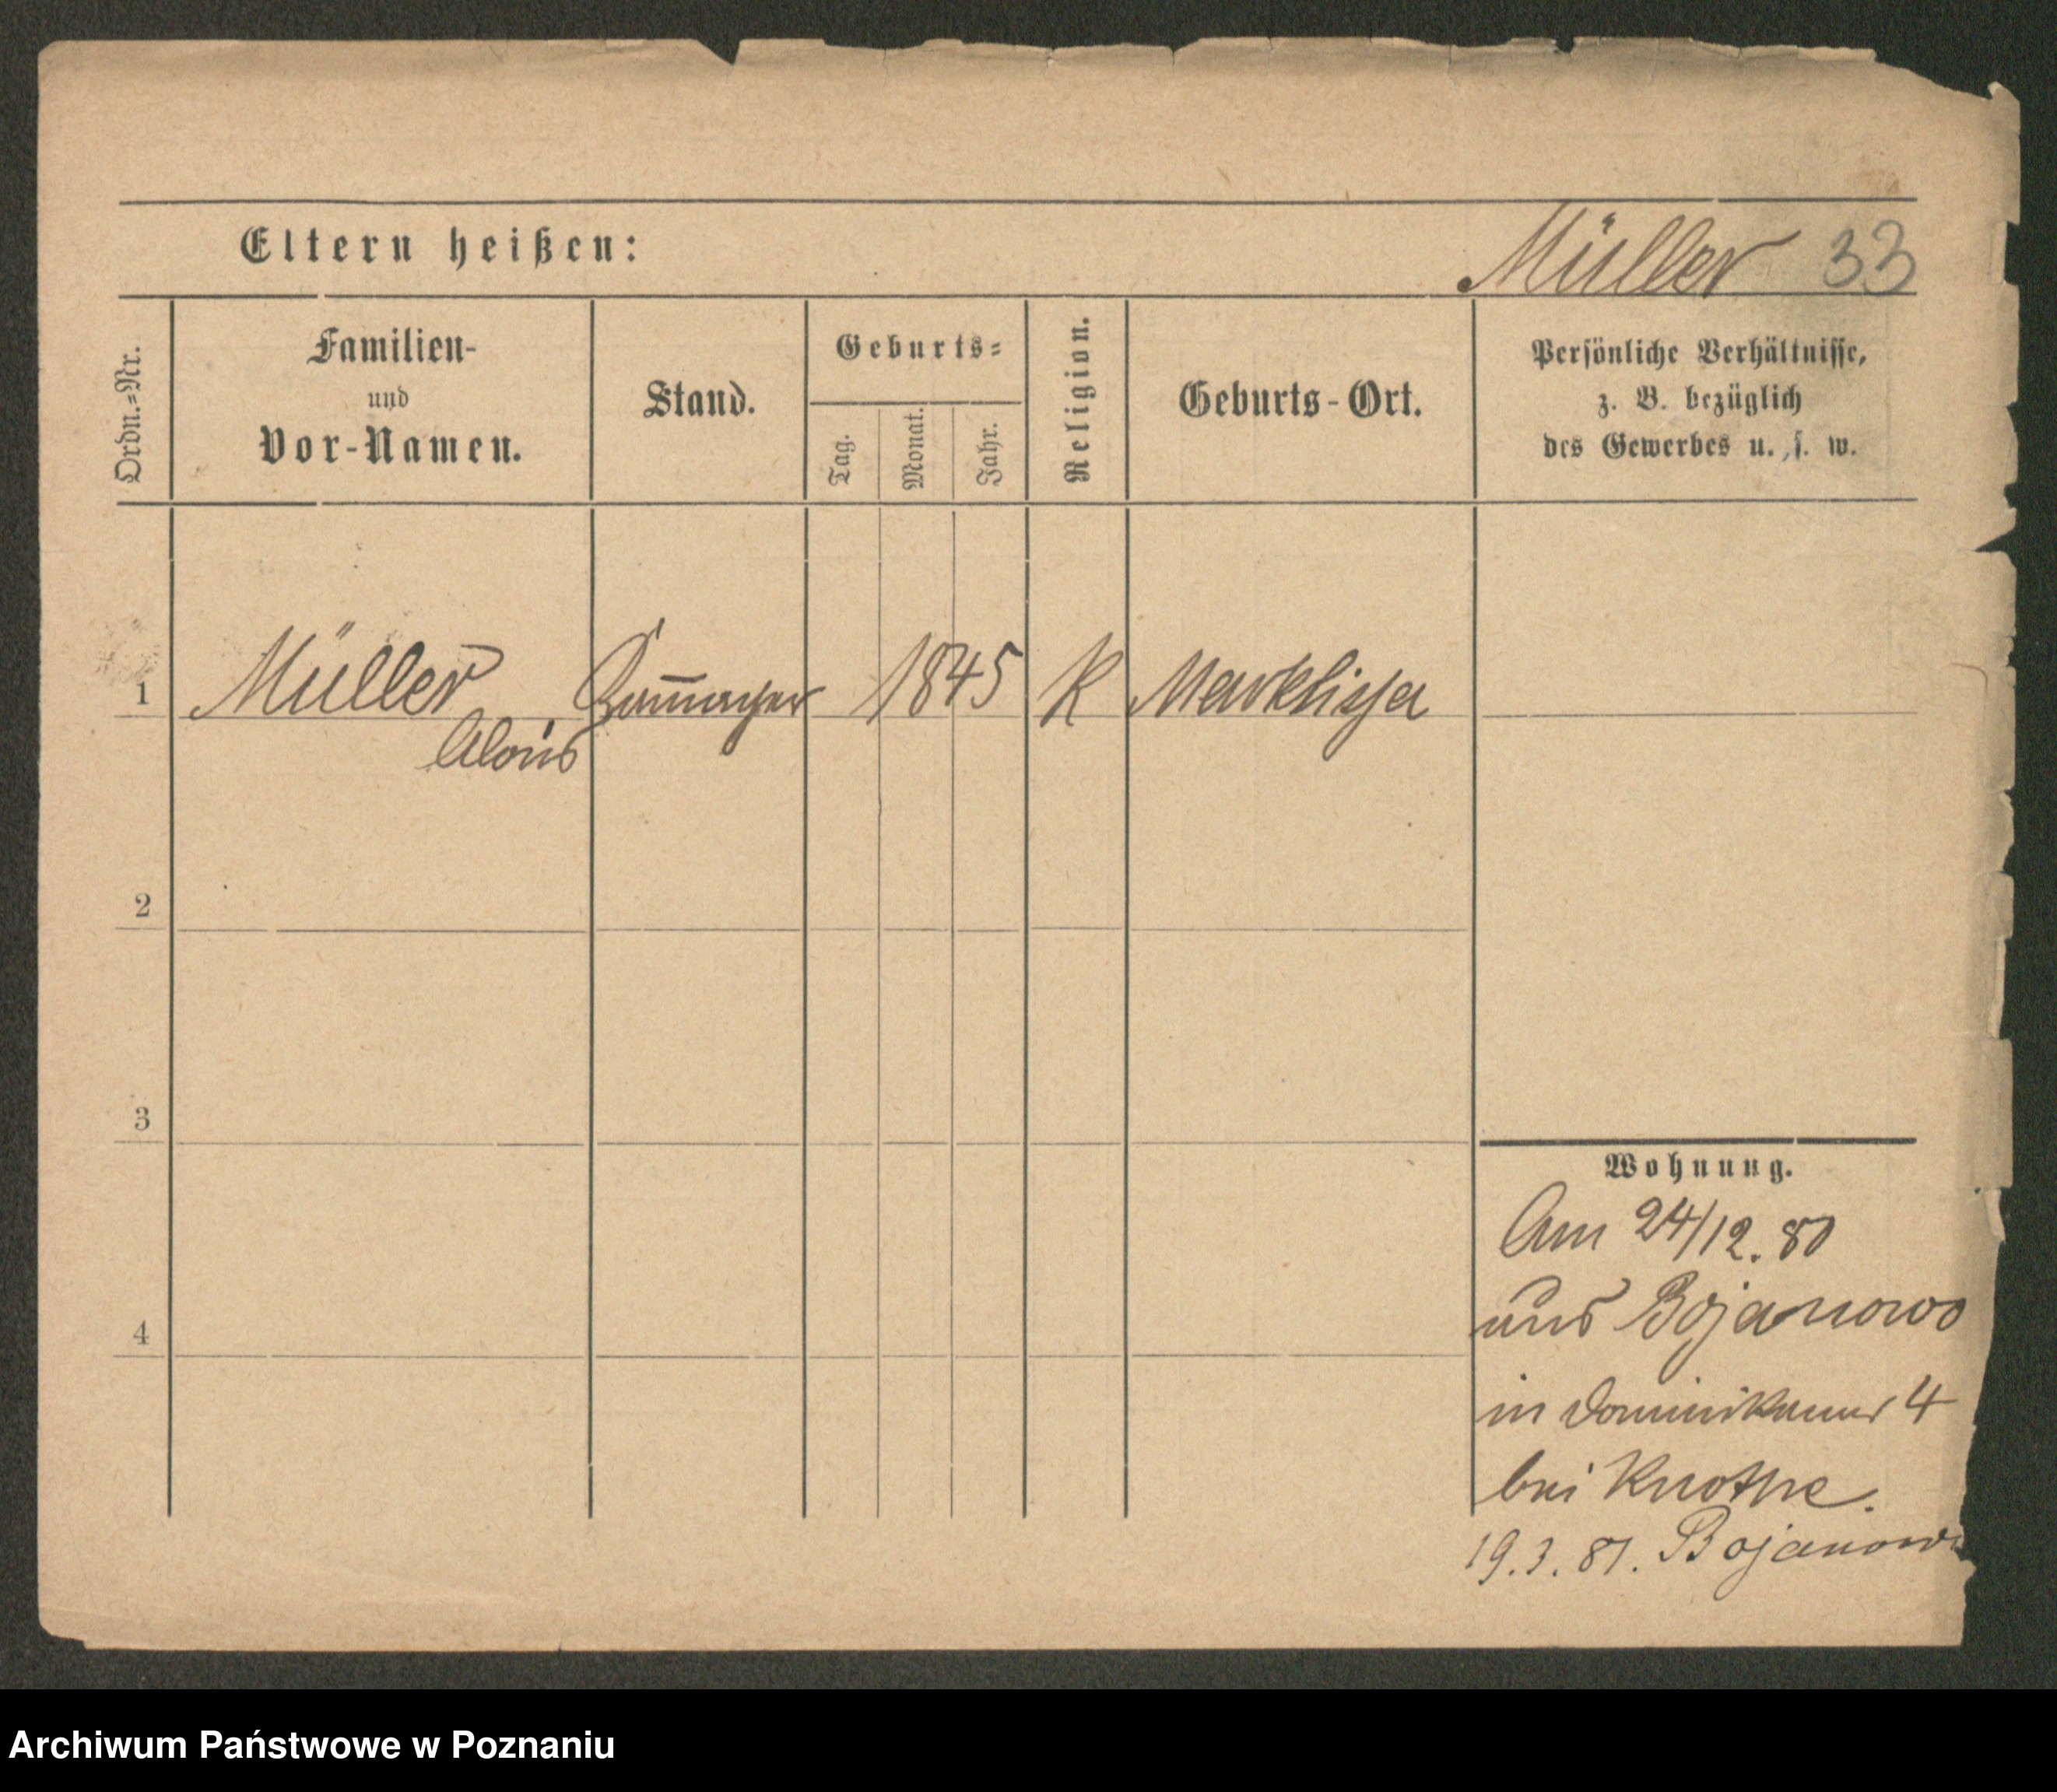 Eltern heißen:
Müller 33
Ordn.=Nr.
Familien-
und
Vor-Namen.
Stand.
Geburts=
Tag.
Monat.
Jahr.
Religion.
Geburts-Ort.
Persönliche Verhältnisse,
z. B. bezüglich
des Gewerbes u. s. w.
1 Müller 1845 K Marklissa
Alois
2
3
4
Wohnung.
Am 24/12. 80
aus Bojanowo
in Dominikaner 4
bei Knothe.
19.3.81. Bojanowo
Archiwum Państwowe w Poznaniu